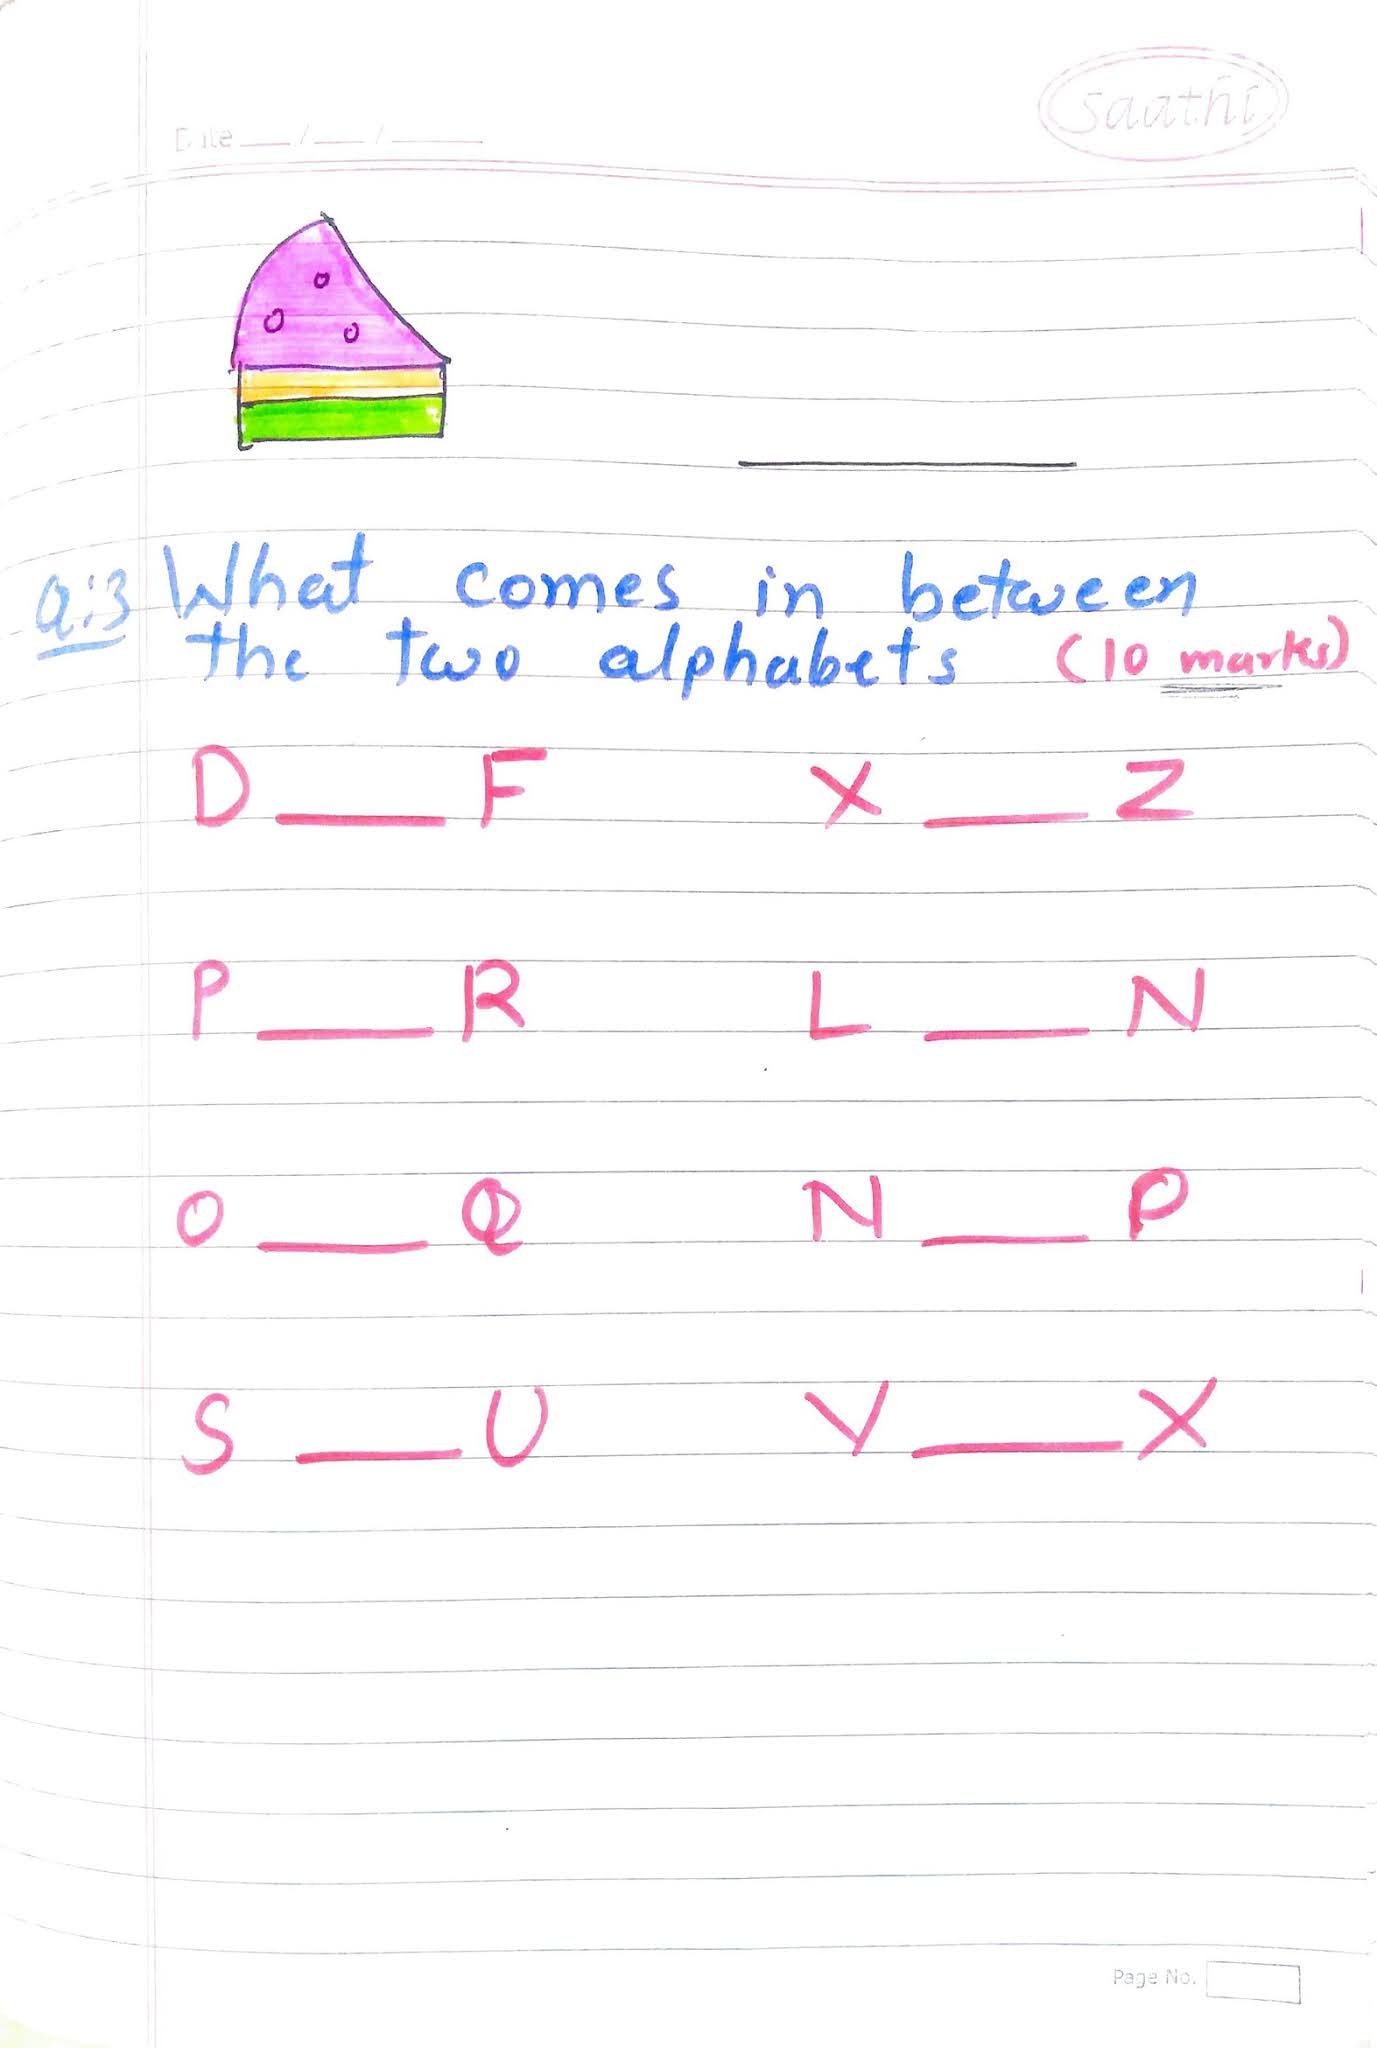 Date __/__/____
Saathi
Q:3 What comes in between
the two alphabets (10 marks)
D ____ F X ____ Z
P ____ R L ____ N
O ____ Q N ____ P
S ____ U V ____ X
Page No.